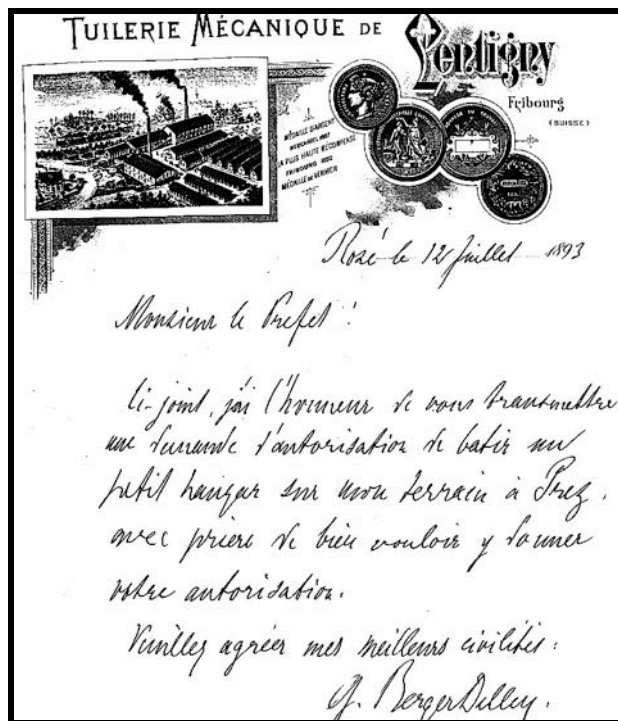 TUILERIE MÉCANIQUE DE
Lentigny
Fribourg
(SUISSE)
MÉDAILLE D'ARGENT
LA PLUS HAUTE RÉCOMPENSE
FRIBOURG 1892
MÉDAILLE DE VERMEIL
Rosé le 12 Juillet 1893
Monsieur le Prefet !
Ci-joint, j'ai l'honneur de vous transmettre
une demande d'autorisation de batir un
petit hangar sur mon terrain à Prez,
avec prière de bien vouloir y donner
votre autorisation.
Veuillez agréer mes meilleurs civilités.
Berger Dilley.